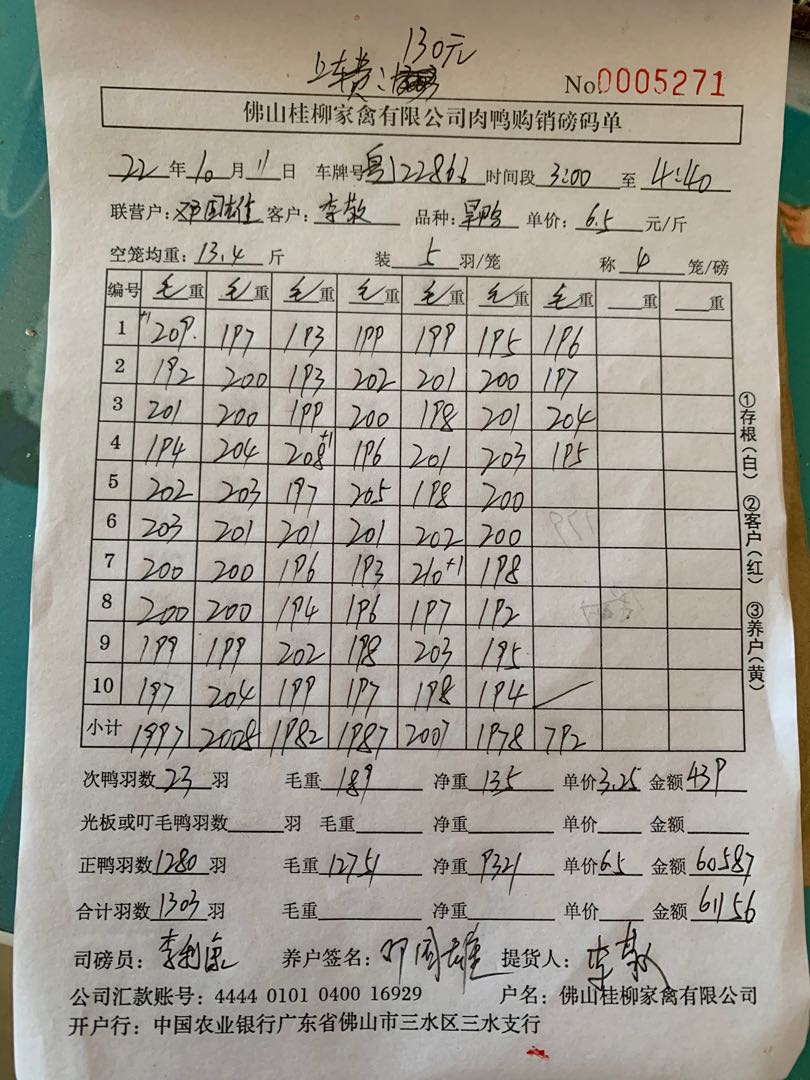 130元
上车费:
No.0005271
佛山桂柳家禽有限公司肉鸭购销磅码单
22年10月11日 车牌号粤J22866 时间段3:00至4:40
联营户:邓国雄 客户:李敬 品种:旱鸭 单价:6.5元/斤
空笼均重:13.4斤 装5羽/笼 称4笼/磅
编号 毛重 毛重 毛重 毛重 毛重 毛重 毛重 重 重
1 +1 209. 197 193 199 199 195 196
2 192 200 193 202 201 200 197
3 201 200 199 200 198 201 204
4 194 204 208+1 196 201 203 195
5 202 203 197 205 198 200
6 203 201 201 201 202 200
7 200 200 196 193 210+1 198
8 200 200 194 196 197 192
9 199 199 202 198 203 195
10 197 204 199 197 198 194
小计 1997 2008 1982 1987 2007 1978 792
①存根(白) ②客户(红) ③养户(黄)
次鸭羽数23羽 毛重189 净重135 单价3.25 金额439
光板或叮毛鸭羽数 羽 毛重 净重 单价 金额
正鸭羽数1280羽 毛重12751 净重9321 单价6.5 金额60587
合计羽数1303羽 毛重 净重 单价 金额61156
司磅员:李 养户签名:邓国雄 提货人:李敬
公司汇款账号:4444 0101 0400 16929 户名:佛山桂柳家禽有限公司
开户行:中国农业银行广东省佛山市三水区三水支行